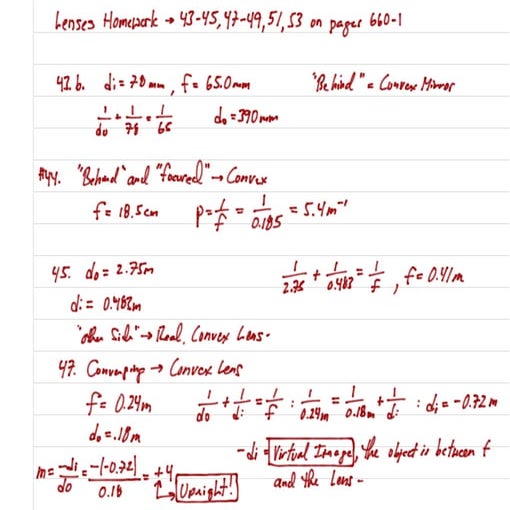 Lenses Homework → 43-45, 47-49, 51, 53 on pages 660-1
43. b. di = 78 mm, f = 65.0mm "Behind" = Convex Mirror
1/do + 1/78 = 1/65 do = 390mm
#44. "Behind" and "focused" → Convex
f = 18.5cm P = 1/f = 1/0.185 = 5.4 m⁻¹
45. do = 2.75m 1/2.75 + 1/0.483 = 1/f, f = 0.41m
di = 0.483m
"other Side" → Real, Convex Lens.
47. Converging → Convex Lens
f = 0.24m 1/do + 1/di = 1/f : 1/0.24m = 1/0.18m + 1/di : di = -0.72m
do = .18m
-di = Virtual Image, the object is between f
m = -di/do = -(-0.72)/0.18 = +4 and the Lens -
↳ Upright!